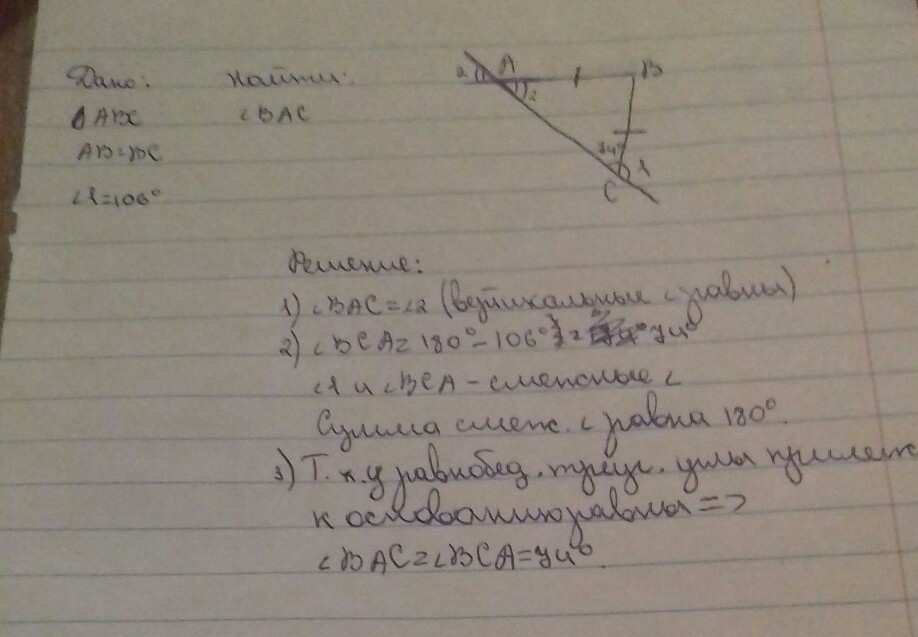 Дано: Найти:
Δ ABC ∠BAC
AB=BC
∠1=106°
2 A B
2
74° 1
C
Решение:
1) ∠BAC=∠2 (вертикальные ∠ равны)
2) ∠BCA=180°-106°= 74°
∠1 и ∠BCA - смежные ∠
Сумма смеж. ∠ равна 180°.
3) Т.к. у равнобед. треуг. углы прилеж
к основанию равны =>
∠BAC=∠BCA=74°.